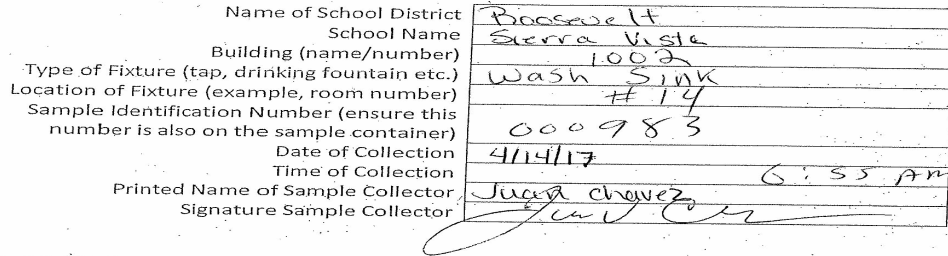 Name of School District Roosevelt
School Name Sierra Vista
Building (name/number) 1002
Type of Fixture (tap, drinking fountain etc.) Wash Sink
Location of Fixture (example, room number) # 14
Sample Identification Number (ensure this
number is also on the sample container) 000983
Date of Collection 4/14/17
Time of Collection 6:55 AM
Printed Name of Sample Collector Juan Chavez
Signature Sample Collector